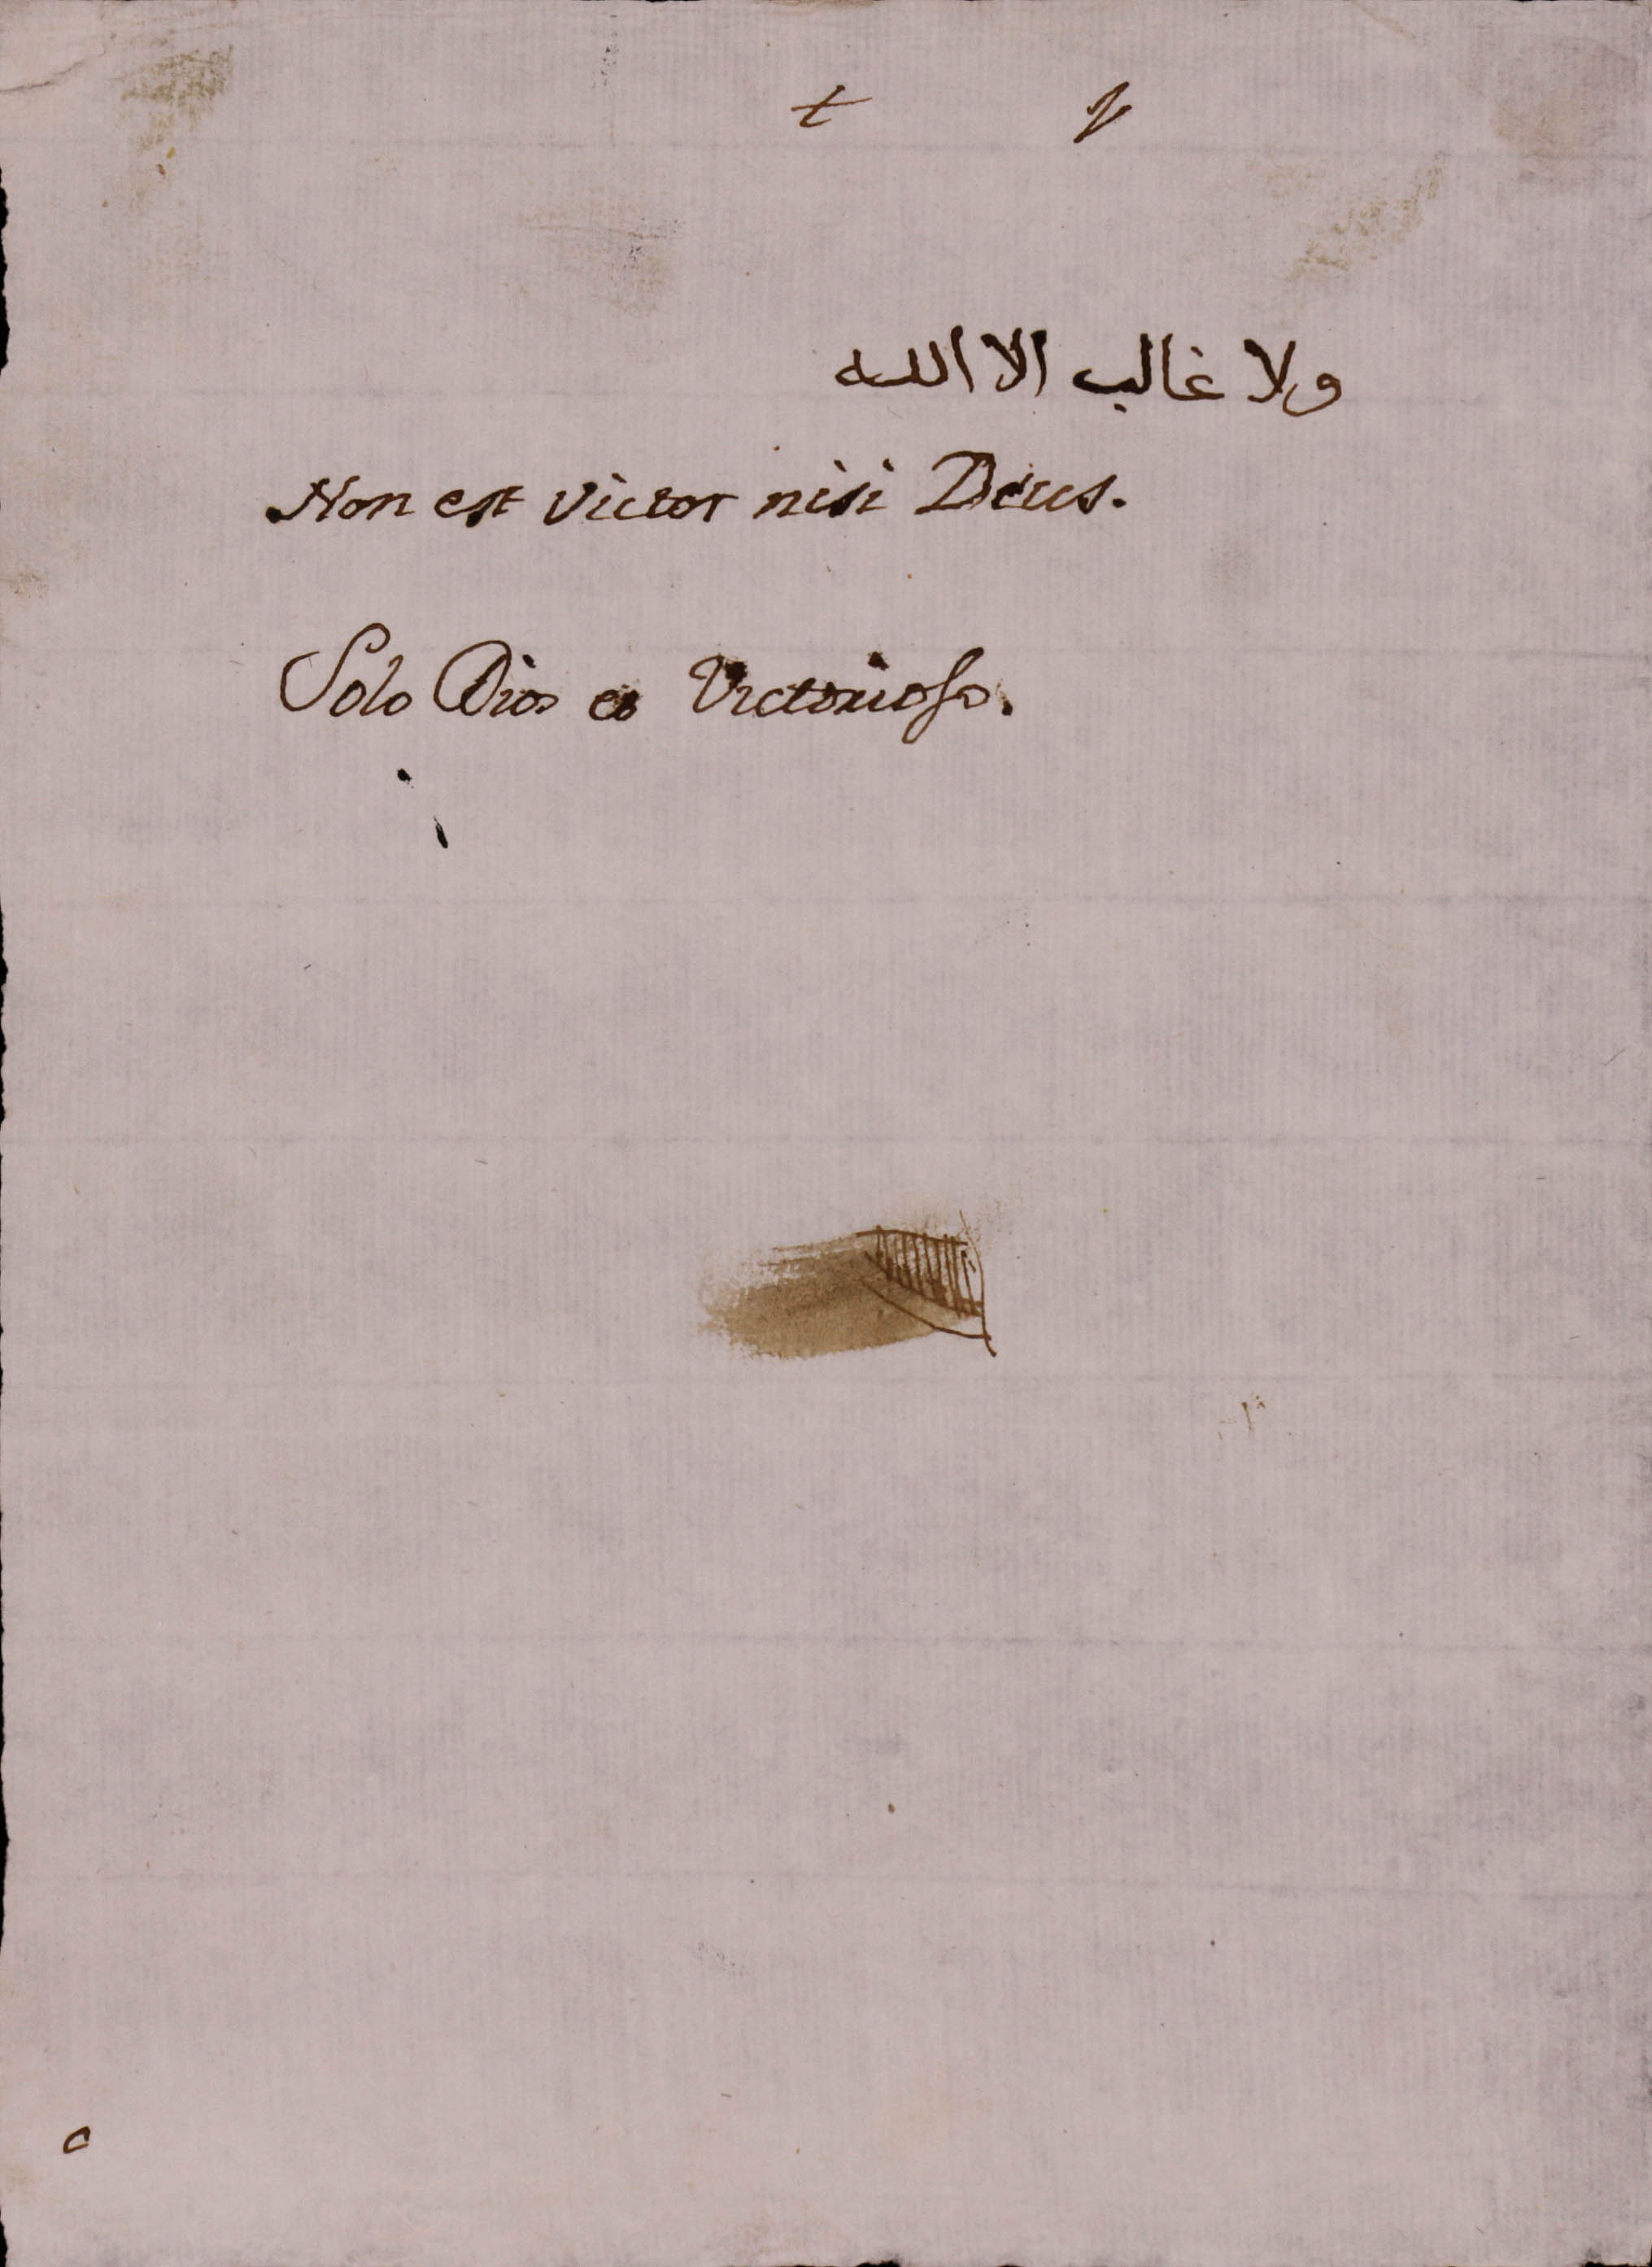 ولا غالب الا الله
Non est victor nisi Deus.
Solo Dios es Victorioso.